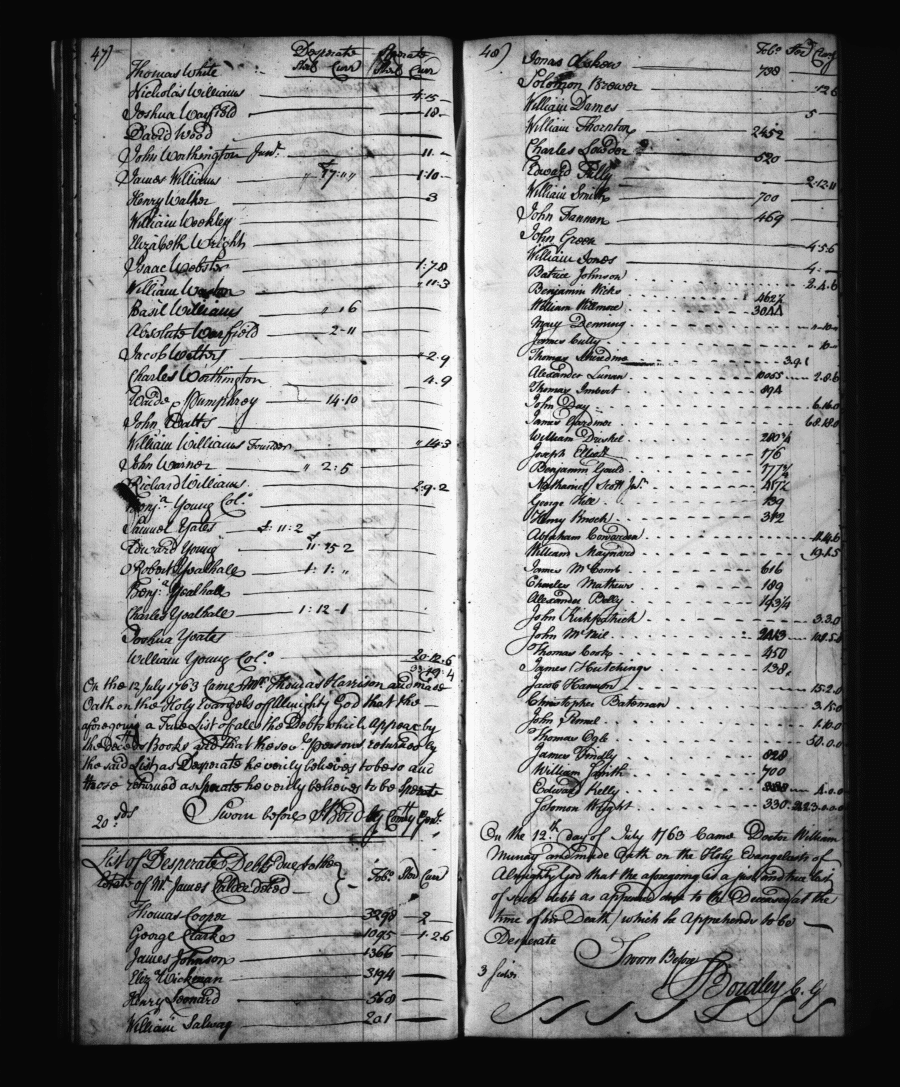 47)
Desperate Sperate
Sterl Curr Sterl Curr
Thomas White
Nicholas Williams 4:15
Joshua Warfield 18
David Wood
John Worthington Junr. 11
James Williams 17 1:10
Henry Walker 3
William Weekley
Elizabeth Wright
Isaac Webster 1:7:8
William 11:3
Basil Williams 1 6
Absolute Warfield 2-11
Jacob Walters 2.9
Charles Worthington 4.9
Wade Humphrey 14.10
John Watts
William Williams Founder 14.3
John Warner 2:5
Richard Williams 2.9.2
Benja. Young Colo.
Samuel Yates £:11:2
Edward Young 11 15 2
Robert Yealhall 1:1:
Benj: Yealhall
Charles Yealhall 1:12-1
Joshua Yeates
William Young Colo. 20.12.6
On the 12 July 1763 Came Mr. Thomas Harrison and made
Oath on the Holy Evangels of Almighty God that the
aforegoing a True List of all the Debts which Appear by
the Deced Books and that the sev.l persons returned by
the said List as Desperate he verily believes to be so and
those returned as Sperate he verily believes to be Sperate
20 sds Sworn before
List of Desperate Debts due to the
Estate of Mr. James Calder Deced Tobo. Sterl Curr
Thomas Cooper 3298 2
George Clarke 1095 1.2.6
James Johnson 1366
Eliz. Wickman 3194
Henry Leonard 568
William Salway 201
48)
Tobo. Sterl Curry
Jonas 708
Solomon Brewer 12 6
William Dames 5
William Thornton 2452
Charles Lowder 520
Edward Tilly 2.12.11
William Smith 700
John Fannen 469
John Green 4.5.6
William Jones 4.
Batrice Johnson 2.4.6
Benjamin Wicks 462½
William Willmore 3044
Mary Denning 10
James Cully 10
Thomas 3.9.1
Alexander Lunan 10055 2.8.6
Thomas Imbert 894
John Day 6.16.0
James Gardner 68.18.0
William Driskel 210¼
Joseph Elliott 176
Benjamin Gould 177¾
Nathaniel Scott Junr. 457½
George Hill 139
Henry Brock 312
Abraham Cowarden 11.4.6
William Maynard 19.1.5
James McComb 616
Charles Mathews 189
Alexander Belly 193¼
John Kirkpatrick 3.3.0
John McNeil
Thomas Cook 450
James Hutchings 138
Jacob Harmon 15.2.0
Christopher Bateman 3.15.0
John 1.10.0
Thomas Ogle 50.0.0
James Tindly 828
William Smith 700
Edward Kelly 4.0.0
Solomon Wright 330
On the 12th day of July 1763 Came Doctor William
Murray and made Oath on the Holy Evangelists of
Almighty God that the aforegoing is a just and true List
of such debts as appeared due to the Deceased at the
time of his Death which he Apprehends to be
Desperate
Sworn Before
3 sides
Bordley C. G